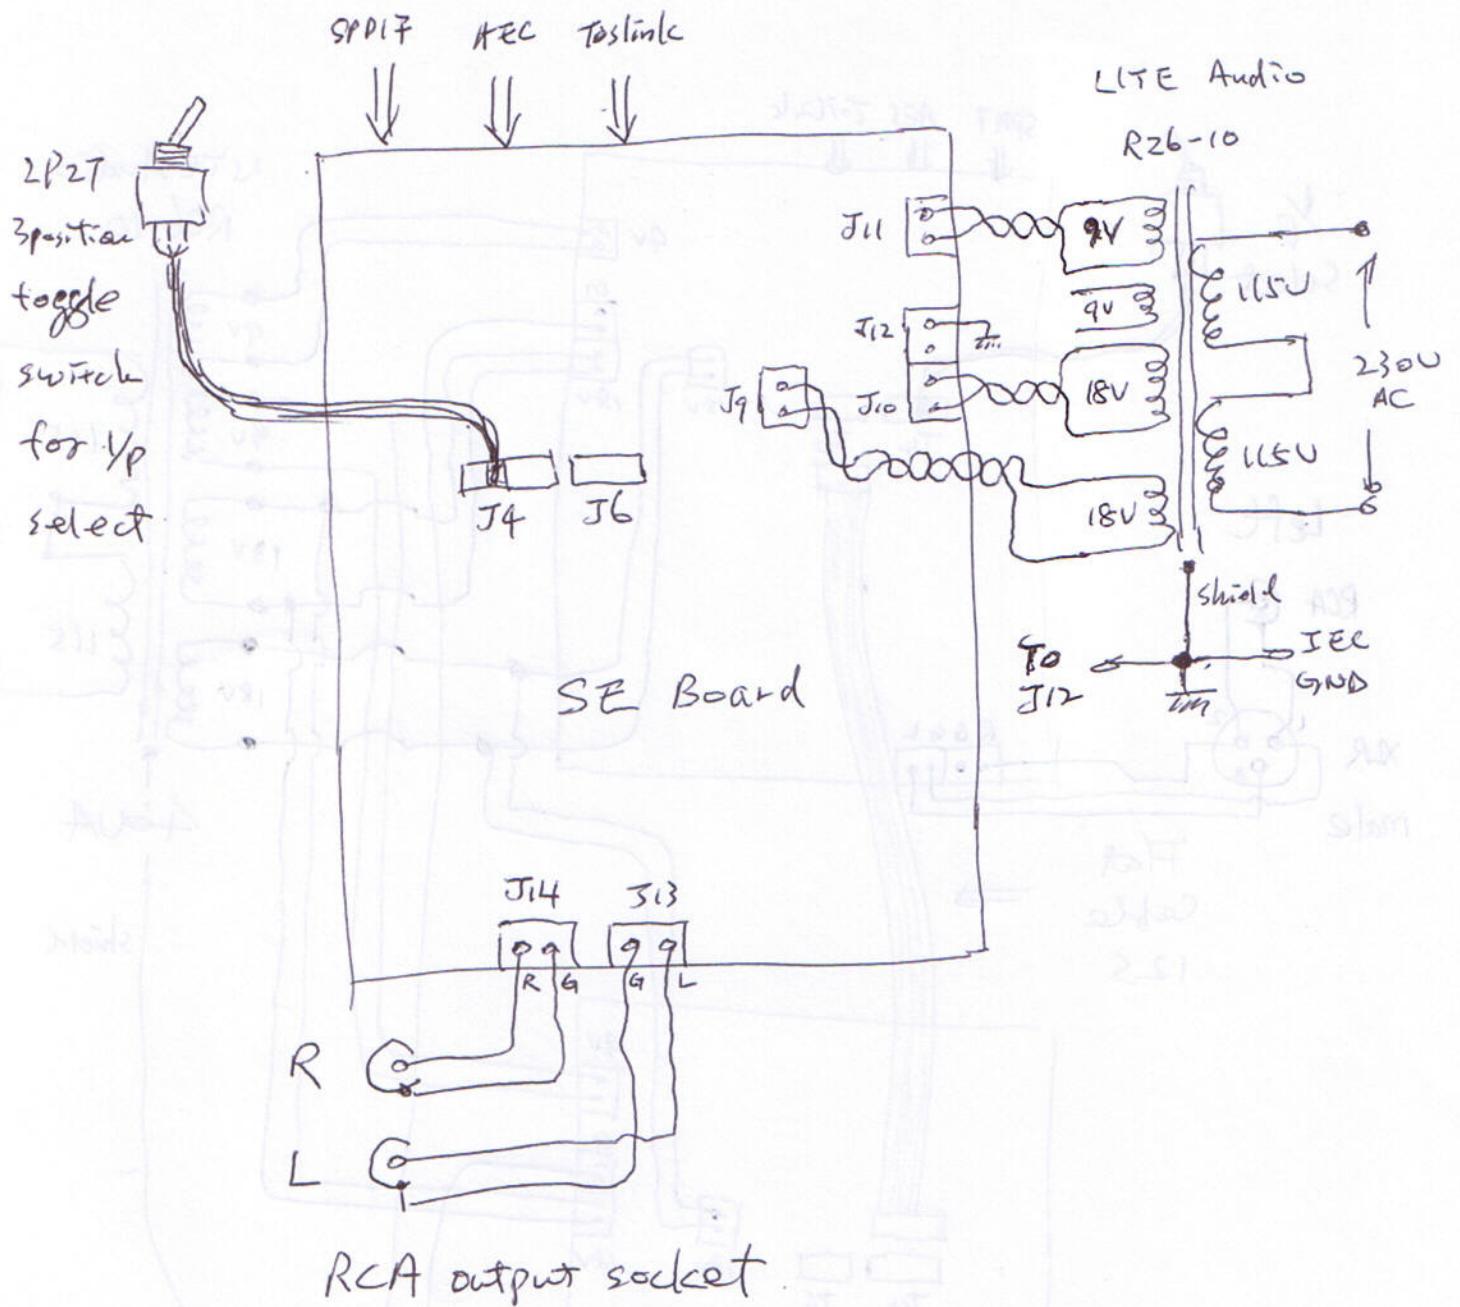 SPDIF AEC Toslink
LITE Audio
R26-10
2P2T
3position
toggle
switch
for i/p
select
J11
9V
9V
115V
J12
J9
J10
18V
230V
AC
115V
18V
J4 J6
shield
To
J12
IEC
GND
SE Board
J14 J13
R G G L
R
L
RCA output socket